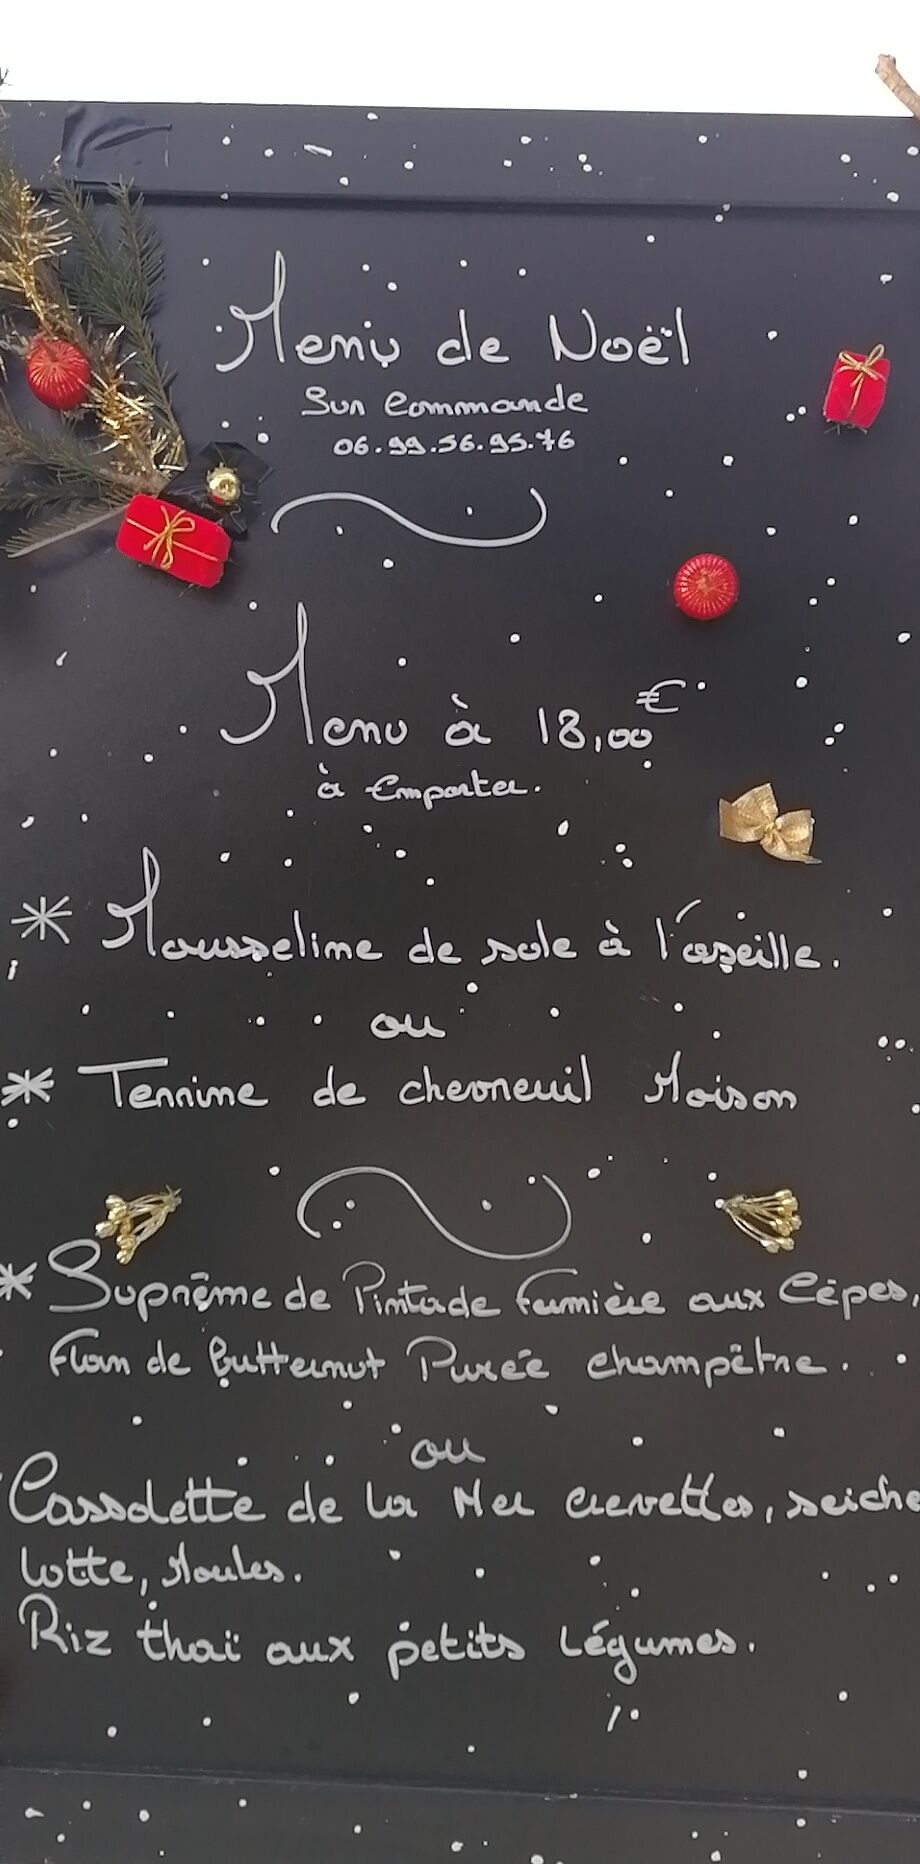 Menu de Noël
Sur Commande
06.99.56.95.76
Menu à 18,00€
à Emporter.
* Mousseline de sole à l'oseille.
ou
* Terrine de chevreuil Maison
* Suprême de Pintade Fermière aux Cèpes,
Flan de Butternut Purée champêtre.
ou
Cassolette de la Mer crevettes, seiche
lotte, Moules.
Riz thaï aux petits Légumes.